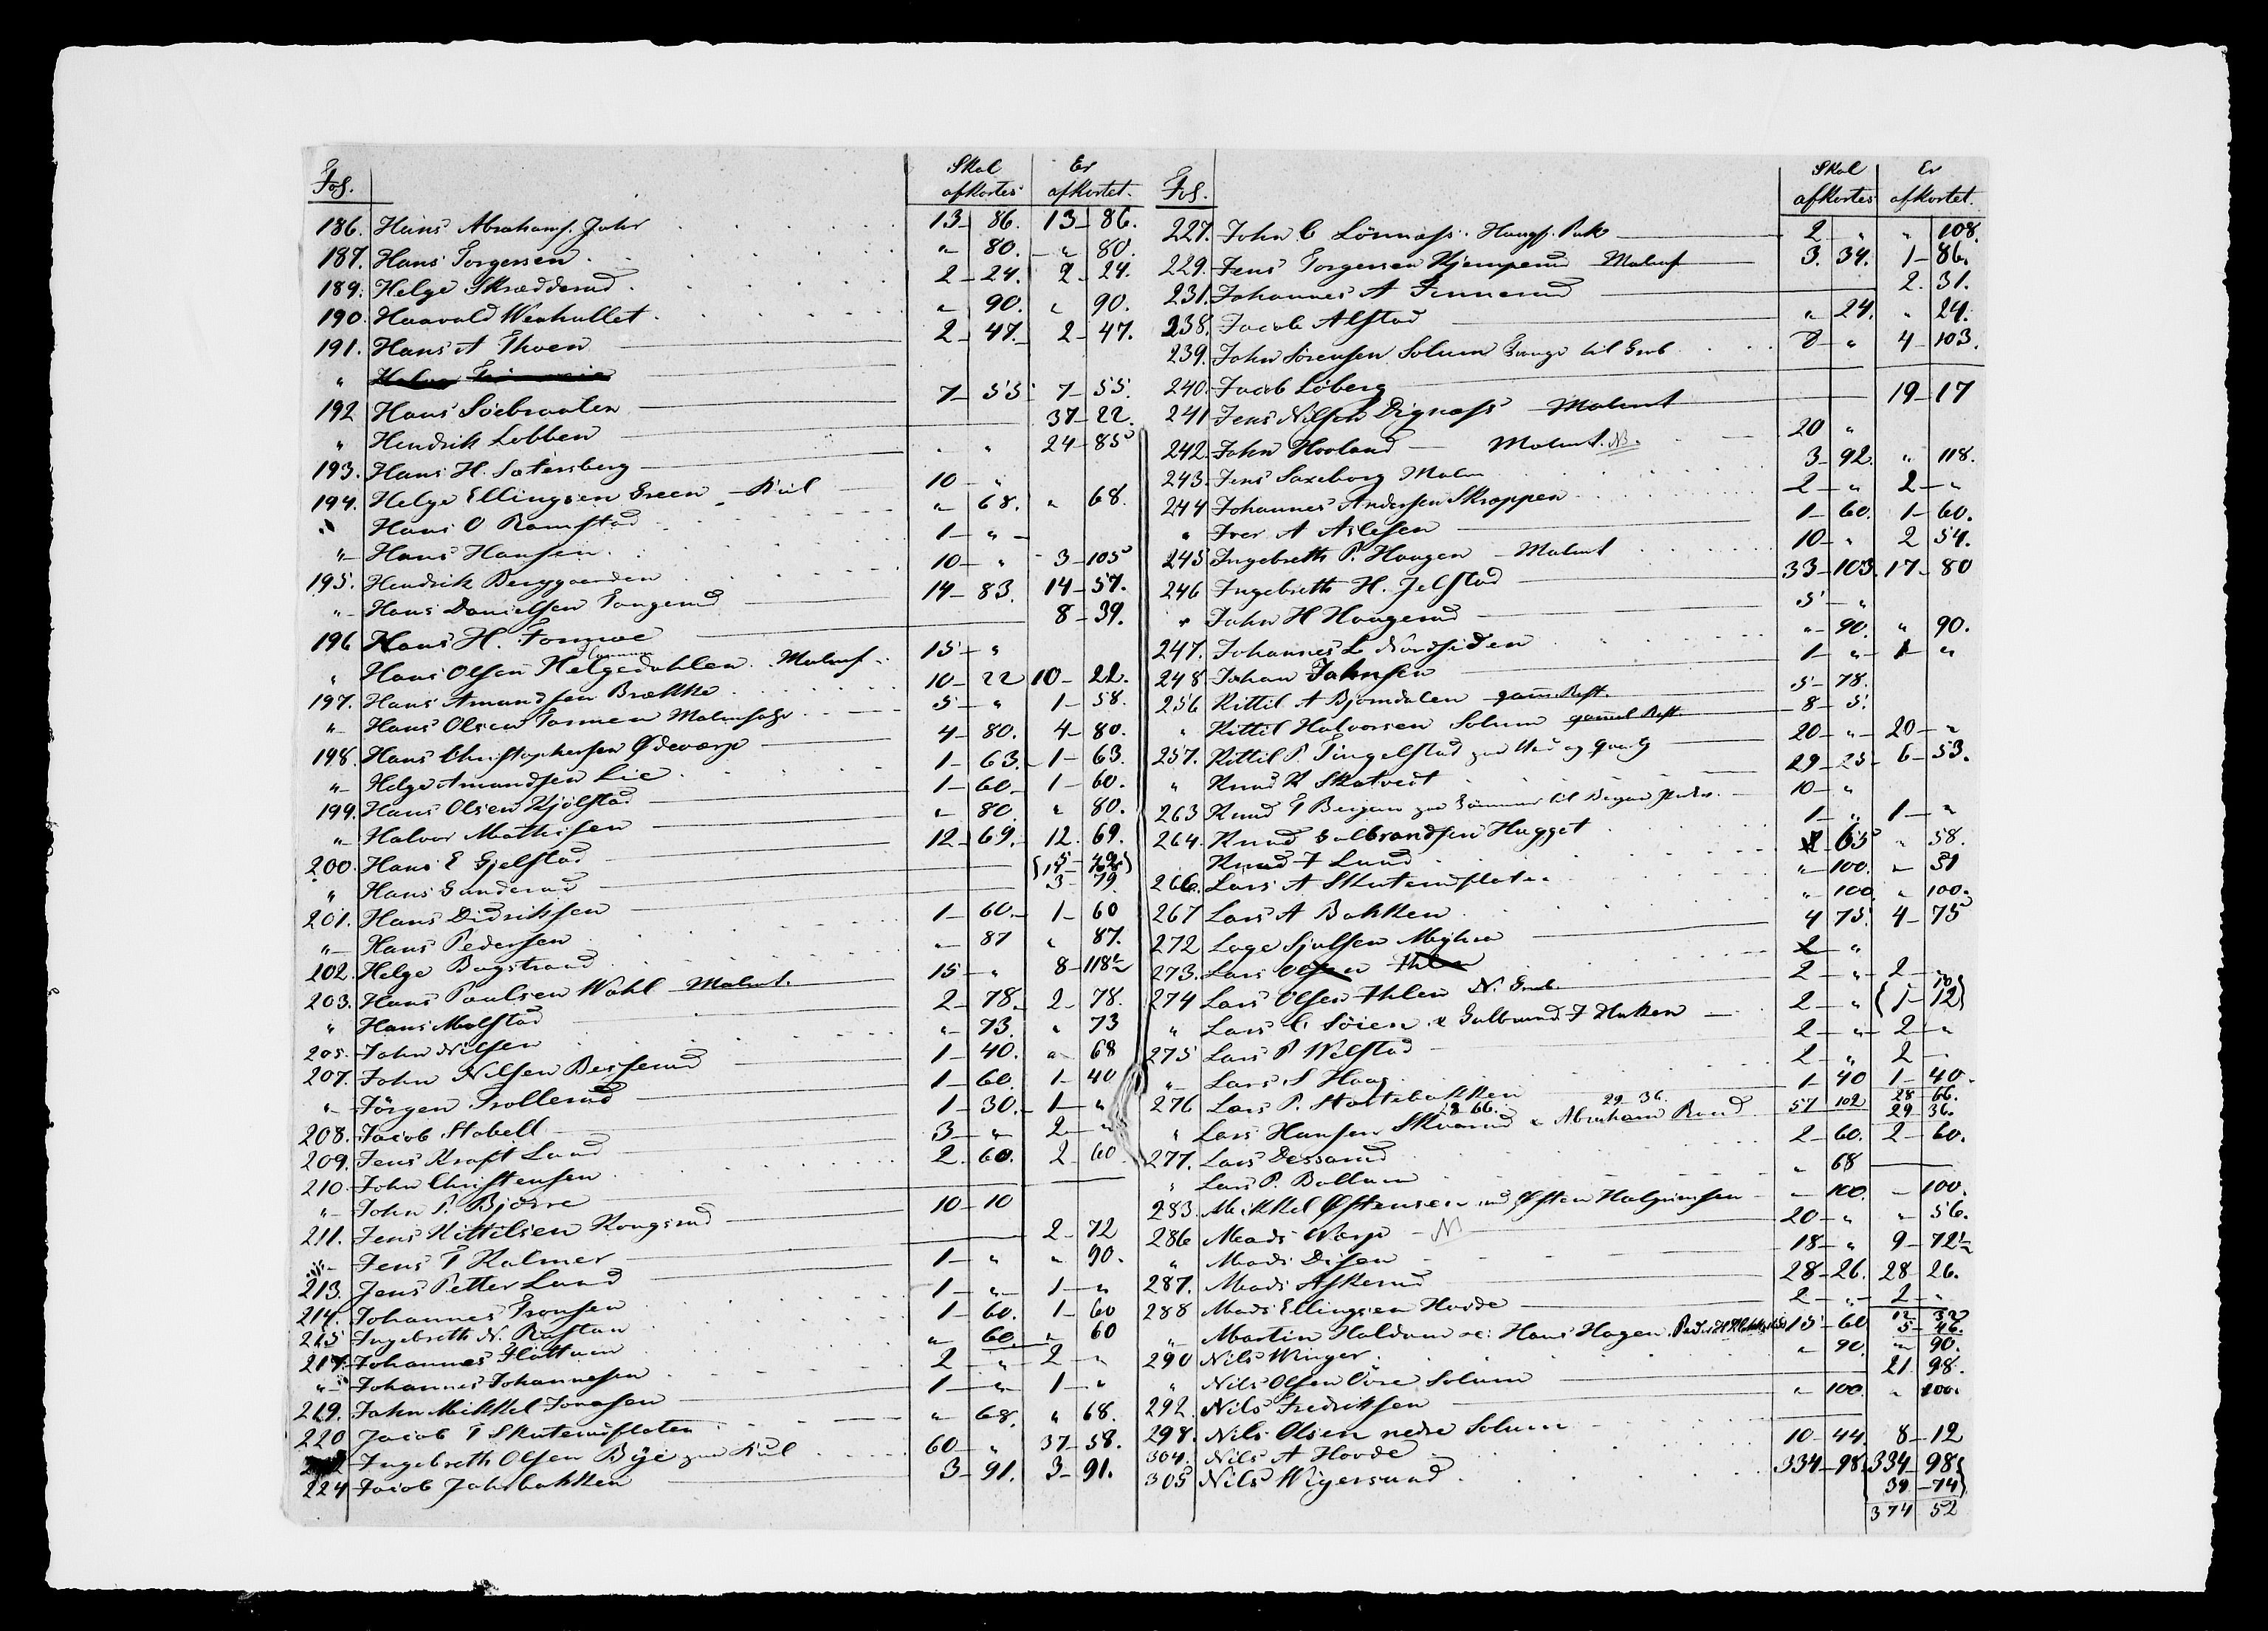 Fol. Skal afkortes Er afkortet.
186. Hans Abrahams. Jahr 13 86. 13 86.
187. Hans Torgersen „ 80. „ 80.
189. Helge Skrædderud 2 24. 2 24.
190. Haavald Weahullet „ 90. „ 90.
191. Hans A Thoen 2 47. 2 47.
„
192 Hans Söebraaten 7 55 7 55.
„ Hendrik Lobben 37 22.
193. Hans H. Satersberg „ „ 24 85
194. Helge Ellingsen Green Kul 10 „
„ Hans O Ramstad „ 68. „ 68.
„ Hans Hansen 1 „
195. Hendrik Berggaarden 10 „ 3 105
„ Hans Danielsen Tangerud 14 83. 14 57.
196 Hans H. 8 39.
„ Hans Olsen Helgedahlen Malmf 15 „
197. Hans Amundsen Brække 10 22 10 22.
„ Hans Olsen Tormen 5 „ 1 58.
198. Hans Christophersen Ödevarp 4 80. 4 80.
„ Helge Amundsen Lie 1 63. 1 63.
199. Hans Olsen Kjölstad 1 60 1 60.
„ Halvor Mathisen „ 80. „ 80.
200. Hans E Gjelstad 12 69. 12 69.
„ Hans Gunderud 3 79
201. Hans Didriksen 1 60 1 60
„ Hans Pedersen „ 87 „ 87.
202. Helge Bagstrand 15 „ 8 118½
203. Hans Paulsen Wahl Malmt. 2 78. 2 78.
„ Hans Malstad „ 73. „ 73
205. John Nilsen 1 40. „ 68
207. John Nilsen Besserud 1 60. 1 40
„ Jörgen Trollerud 1 30. 1 „
208. Jacob Stabell 3 „ 2 „
209. Jens Kraft Lund 2 60. 2 60
210. John Christensen
„ John P. Bjørre 10 10
211. Jens Kittilsen Kongsrud 2 72
„ Jens T Kalmer 1 „ „ 90.
213. Jens Petter Lund 1 „ 1 „
214. Johannes Tronsen 1 60. 1 60
215 Ingebreth N. Rastan „ 60. „ 60
217. Johannes Flöttum 2 „ 2 „
„ Johannes Johannesen 1 „ 1 „
219. John Mikkel Jonasen „ 68. „ 68.
220 Jacob T Skuterudflaten 60 „ 37 58.
Ingebreth Olsen Bye 3 91. 3 91.
224 Jacob Jahrbakken
Fol. Skal afkortes Er afkortet.
227. John C Lönnæss. 2 „ „ 108.
229. Jens Torgersen Kjemperud Malmf 3. 34. 1 86.
231. Johannes A Finnerud 2. 31.
238. Jacob Alstad „ 24. „ 24.
239. John Sörensen Solum Tange til Grub 8 „ 4 103.
240. Jacob Löberg
241 Jens Nilsen Dignæss Malmt 19 17
242. John Hovland Malmt. NB. 20 „
243. Jens Saxeborg Malm 3 92. „ 118.
244 Johannes Andersen Skroppen 2 „ 2 „
„ Iver A Aslesen 1 60. 1 60.
245 Ingebreth P. Haagen Malmt 10 „ 2 54.
246 Ingebreth H. Jelstad 33 103. 17 80
„ John H Haagerud 5 „
247. Johannes L Nordsiden „ 90. „ 90.
248 Johan Jahnsen 1 „ 1 „
256 Kittil A Bjorndalen gam. Rest. 5 78.
„ Kittil Halvorsen Solum gamel Rest. 8 5.
257. Kittil P. Tingelstad 20 „ 20 „
„ Knud K Skatveit 29 25 6 53.
263 Knud T Bergan 10 „
264. Knud Gulbrandsen Hugget 1 „ 1 „
„ Knud J Lund 65 „ 58.
266. Lars A Skuterudflaten „ 100. „ 51
267 Lars A Bakken „ 100 „ 100.
272 Lage Sjulsen Myhra 4 75. 4 75
273. Lars Olsen Ihlen 2 „
274 Lars Olsen Ihlen N. Grub. 2 „ 2 „
„ Lars C. Söien & Gulbrand J Hakken 2 „ 1 12
275 Lars P Wilstad 2 „ 2 „
„ Lars S Haag 2 „ 2 „
276 Lars P. Stortebakken 1 40 1 40.
„ Lars Hansen Skuerud 28 66. & Abraham Rued 29 36. 57 102 28 66. 29 36.
277. Lars Dessarud 2 60. 2 60.
„ Lars P. Bollum „ 68
283. Mikkel Østensen Østen Halgrimsen „ 100. „ 100.
286 Mads Warp 20 „ „ 56.
„ Mads Disen 18 „ 9 72½
287. Mads Askerud 28 26. 28 26.
288 Mads Ellingsen Hovde 2 „ 2 „
„ Martin Haldum & Hans Hagen. 15 60 12 32 3 46.
290 Nils Winger „ 90. „ 90.
„ Nils Olsen Övre Solum 21 98.
292. Nils Fredriksen „ 100. „ 100.
298. Nils Olsen nedre Solum
304. Nils A Hovde 10 44. 8 12
305 Nils Wigersund 334 98. 334 98.
39 74
374 52